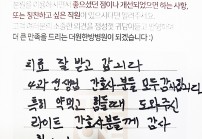 좋으셨던 점이나 개선되었으면 하는 사항,
또는 칭찬하고 싶은 직원이 있으시다면
더 큰 만족을 드리는 더원한방병원이 되겠습니다:)
치료 잘 받고 갑니다
4과 선생님 간호사분들 모두 감사합니다
특히 약먹고 힘들때 도와주신
라이트 간호사분들께 감사